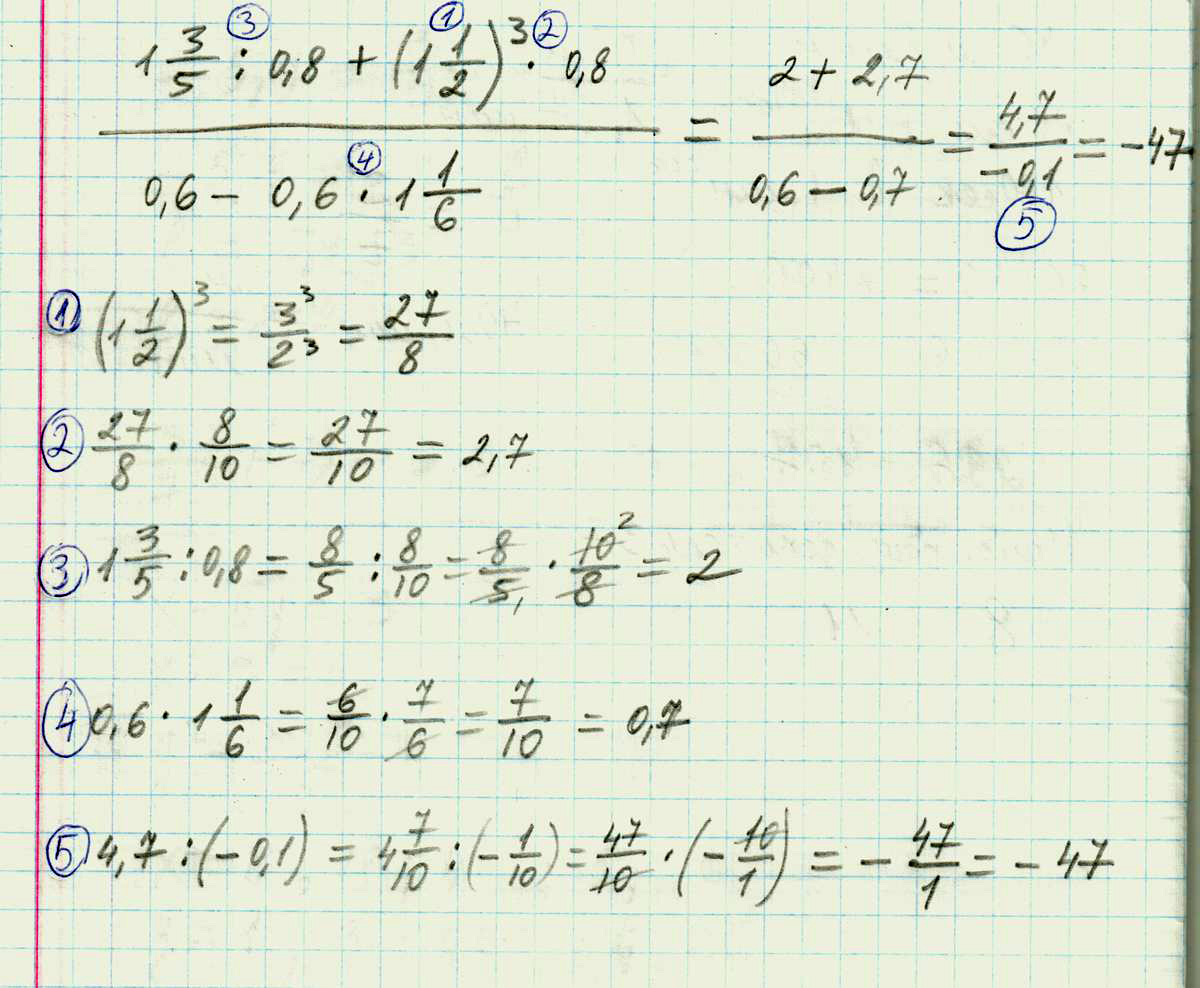 ③ ① ②
1 3/5 : 0,8 + (1 1/2)³ · 0,8 / 0,6 − 0,6 · 1 1/6 = 2 + 2,7 / 0,6 − 0,7 = 4,7 / −0,1 = −47
④ ⑤
① (1 1/2)³ = 3³/2³ = 27/8
② 27/8 · 8/10 = 27/10 = 2,7
③ 1 3/5 : 0,8 = 8/5 : 8/10 = 8/5₁ · 10²/8 = 2
④ 0,6 · 1 1/6 = 6/10 · 7/6 = 7/10 = 0,7
⑤ 4,7 : (−0,1) = 4 7/10 : (−1/10) = 47/10 · (−10/1) = −47/1 = −47